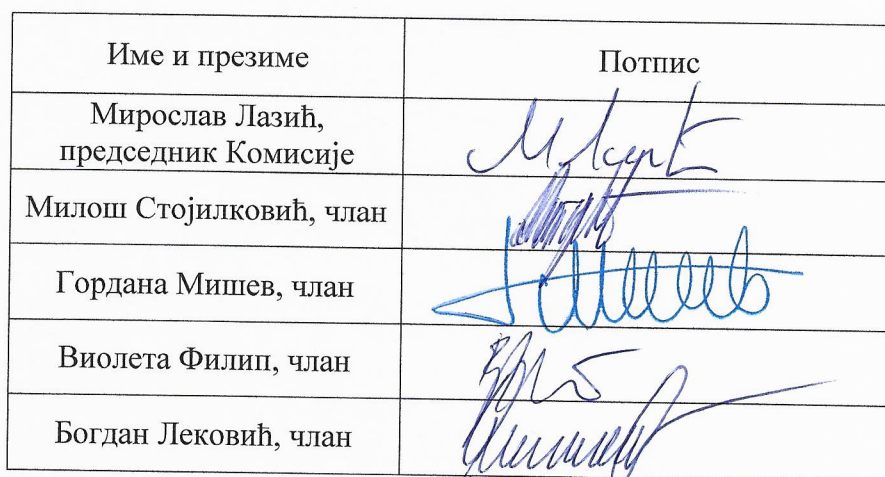 Име и презиме
Потпис
Мирослав Лазић,
председник Комисије
Милош Стојилковић, члан
Гордана Мишев, члан
Виолета Филип, члан
Богдан Лековић, члан